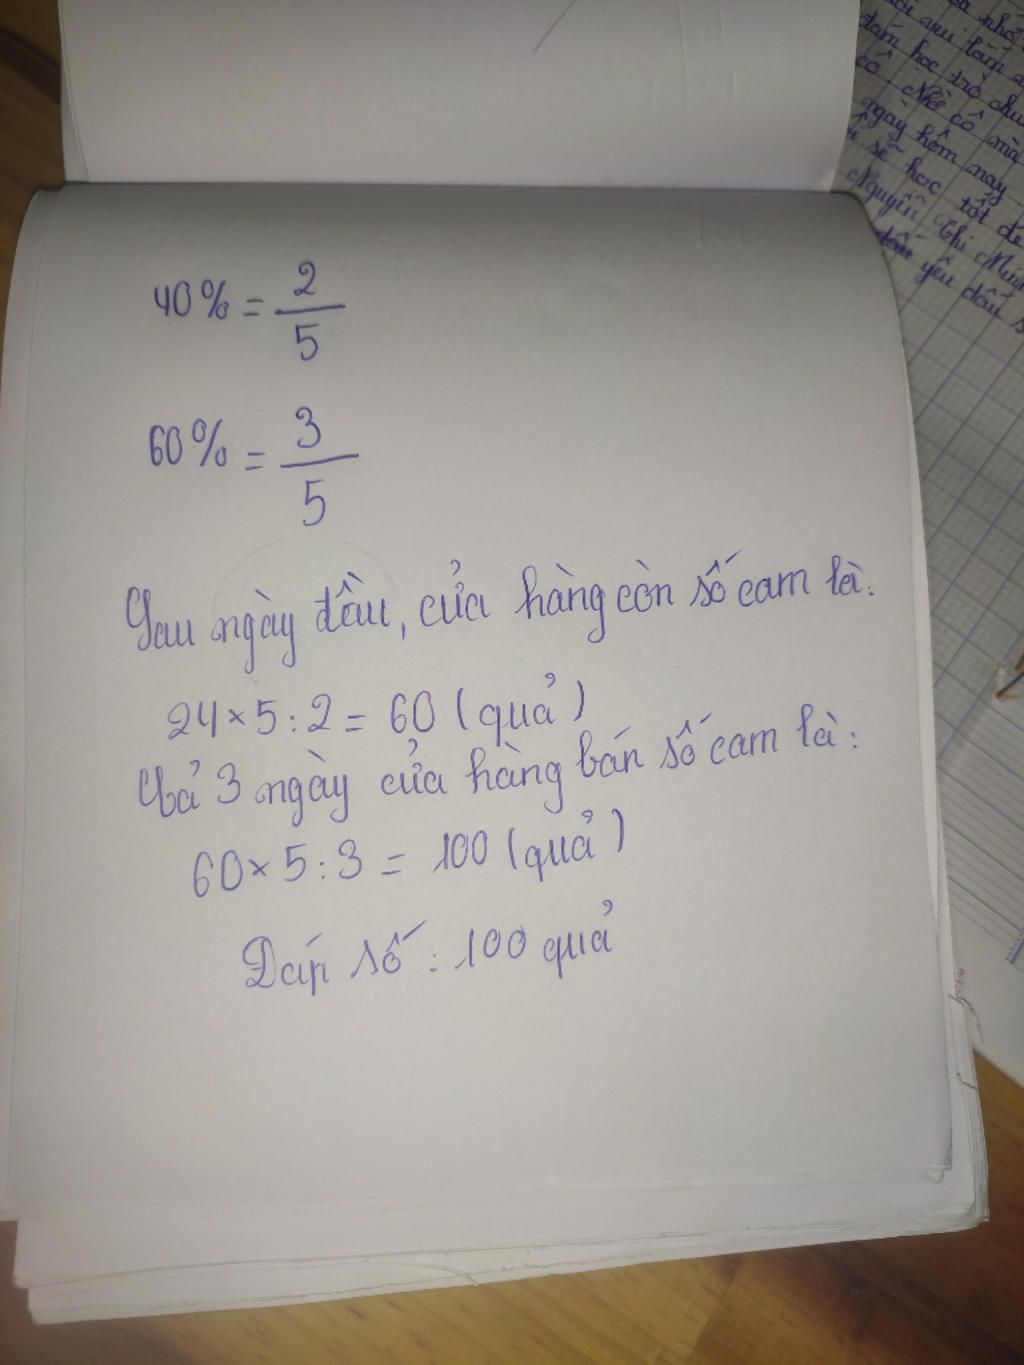 40% = 2/5
60% = 3/5
Sau ngày đầu, cửa hàng còn số cam là:
24 × 5 : 2 = 60 (quả)
Cả 3 ngày cửa hàng bán số cam là:
60 × 5 : 3 = 100 (quả)
Đáp số : 100 quả
đám học trò
cô Nhờ cô mà
ngày hôm nay
sẽ học tốt để
Nguyễn Thị Minh
yêu dấu